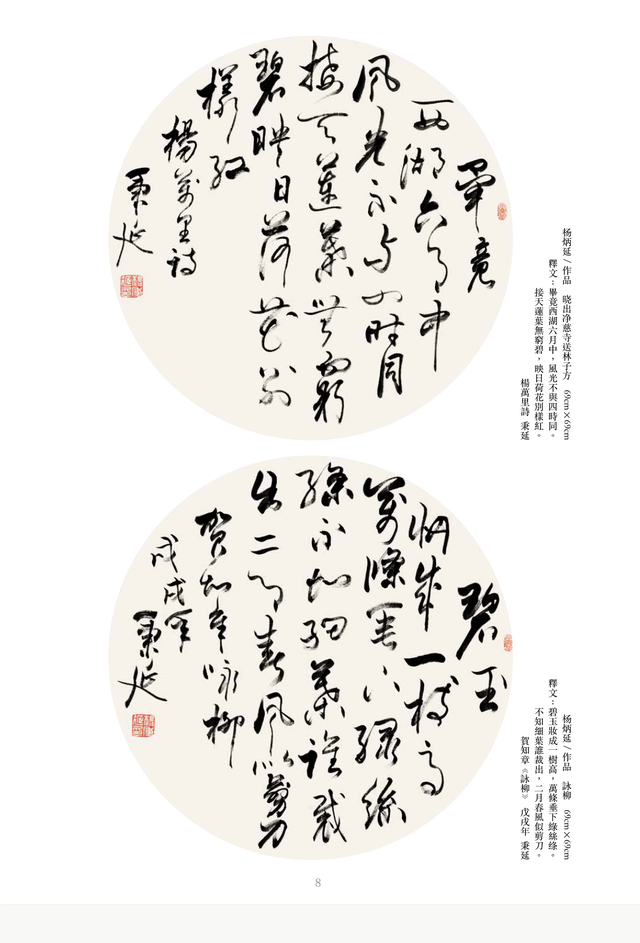 杨炳延/作品 晓出净慈寺送林子方 69cm×69cm
釋文：畢竟西湖六月中，風光不與四時同。
接天蓮葉無窮碧，映日荷花別樣紅。
楊萬里詩 秉延
畢竟
西湖六月中
風光不与四時同
接天蓮葉無窮
碧映日荷花別
樣紅
楊萬里詩
秉延
杨炳延/作品 詠柳 69cm×69cm
釋文：碧玉妝成一樹高，萬條垂下綠絲絛。
不知細葉誰裁出，二月春風似剪刀。
賀知章《詠柳》 戊戌年 秉延
碧玉
妝成一樹高
萬條垂下綠絲
絛不知細葉誰裁
出二月春風似剪刀
賀知章咏柳
戊戌年
秉延
8